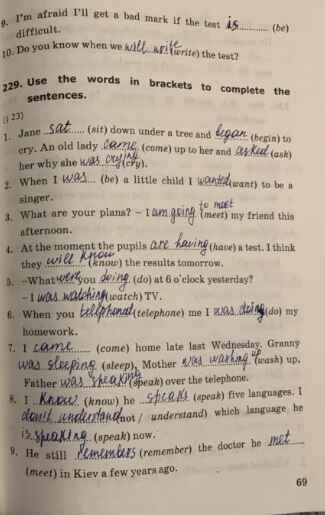 9. I'm afraid I'll get a bad mark if the test is........... (be)
difficult.
10. Do you know when we will write (write) the test?
229. Use the words in brackets to complete the
sentences.
[i 23)
1. Jane sat..... (sit) down under a tree and began (begin) to
cry. An old lady came (come) up to her and asked (ask)
her why she was crying (cry).
2. When I was... (be) a little child I wanted (want) to be a
singer.
3. What are your plans? – I am going to meet (meet) my friend this
afternoon.
4. At the moment the pupils are having (have) a test. I think
they will know (know) the results tomorrow.
5. –What were you doing (do) at 6 o'clock yesterday?
– I was watching (watch) TV.
6. When you telephoned (telephone) me I was doing (do) my
homework.
7. I came...... (come) home late last Wednesday. Granny
was sleeping (sleep), Mother was washing up (wash) up,
Father was speaking (speak) over the telephone.
8. I know (know) he speaks (speak) five languages. I
don't understand (not / understand) which language he
is speaking (speak) now.
9. He still remembers (remember) the doctor he met....
(meet) in Kiev a few years ago.
69